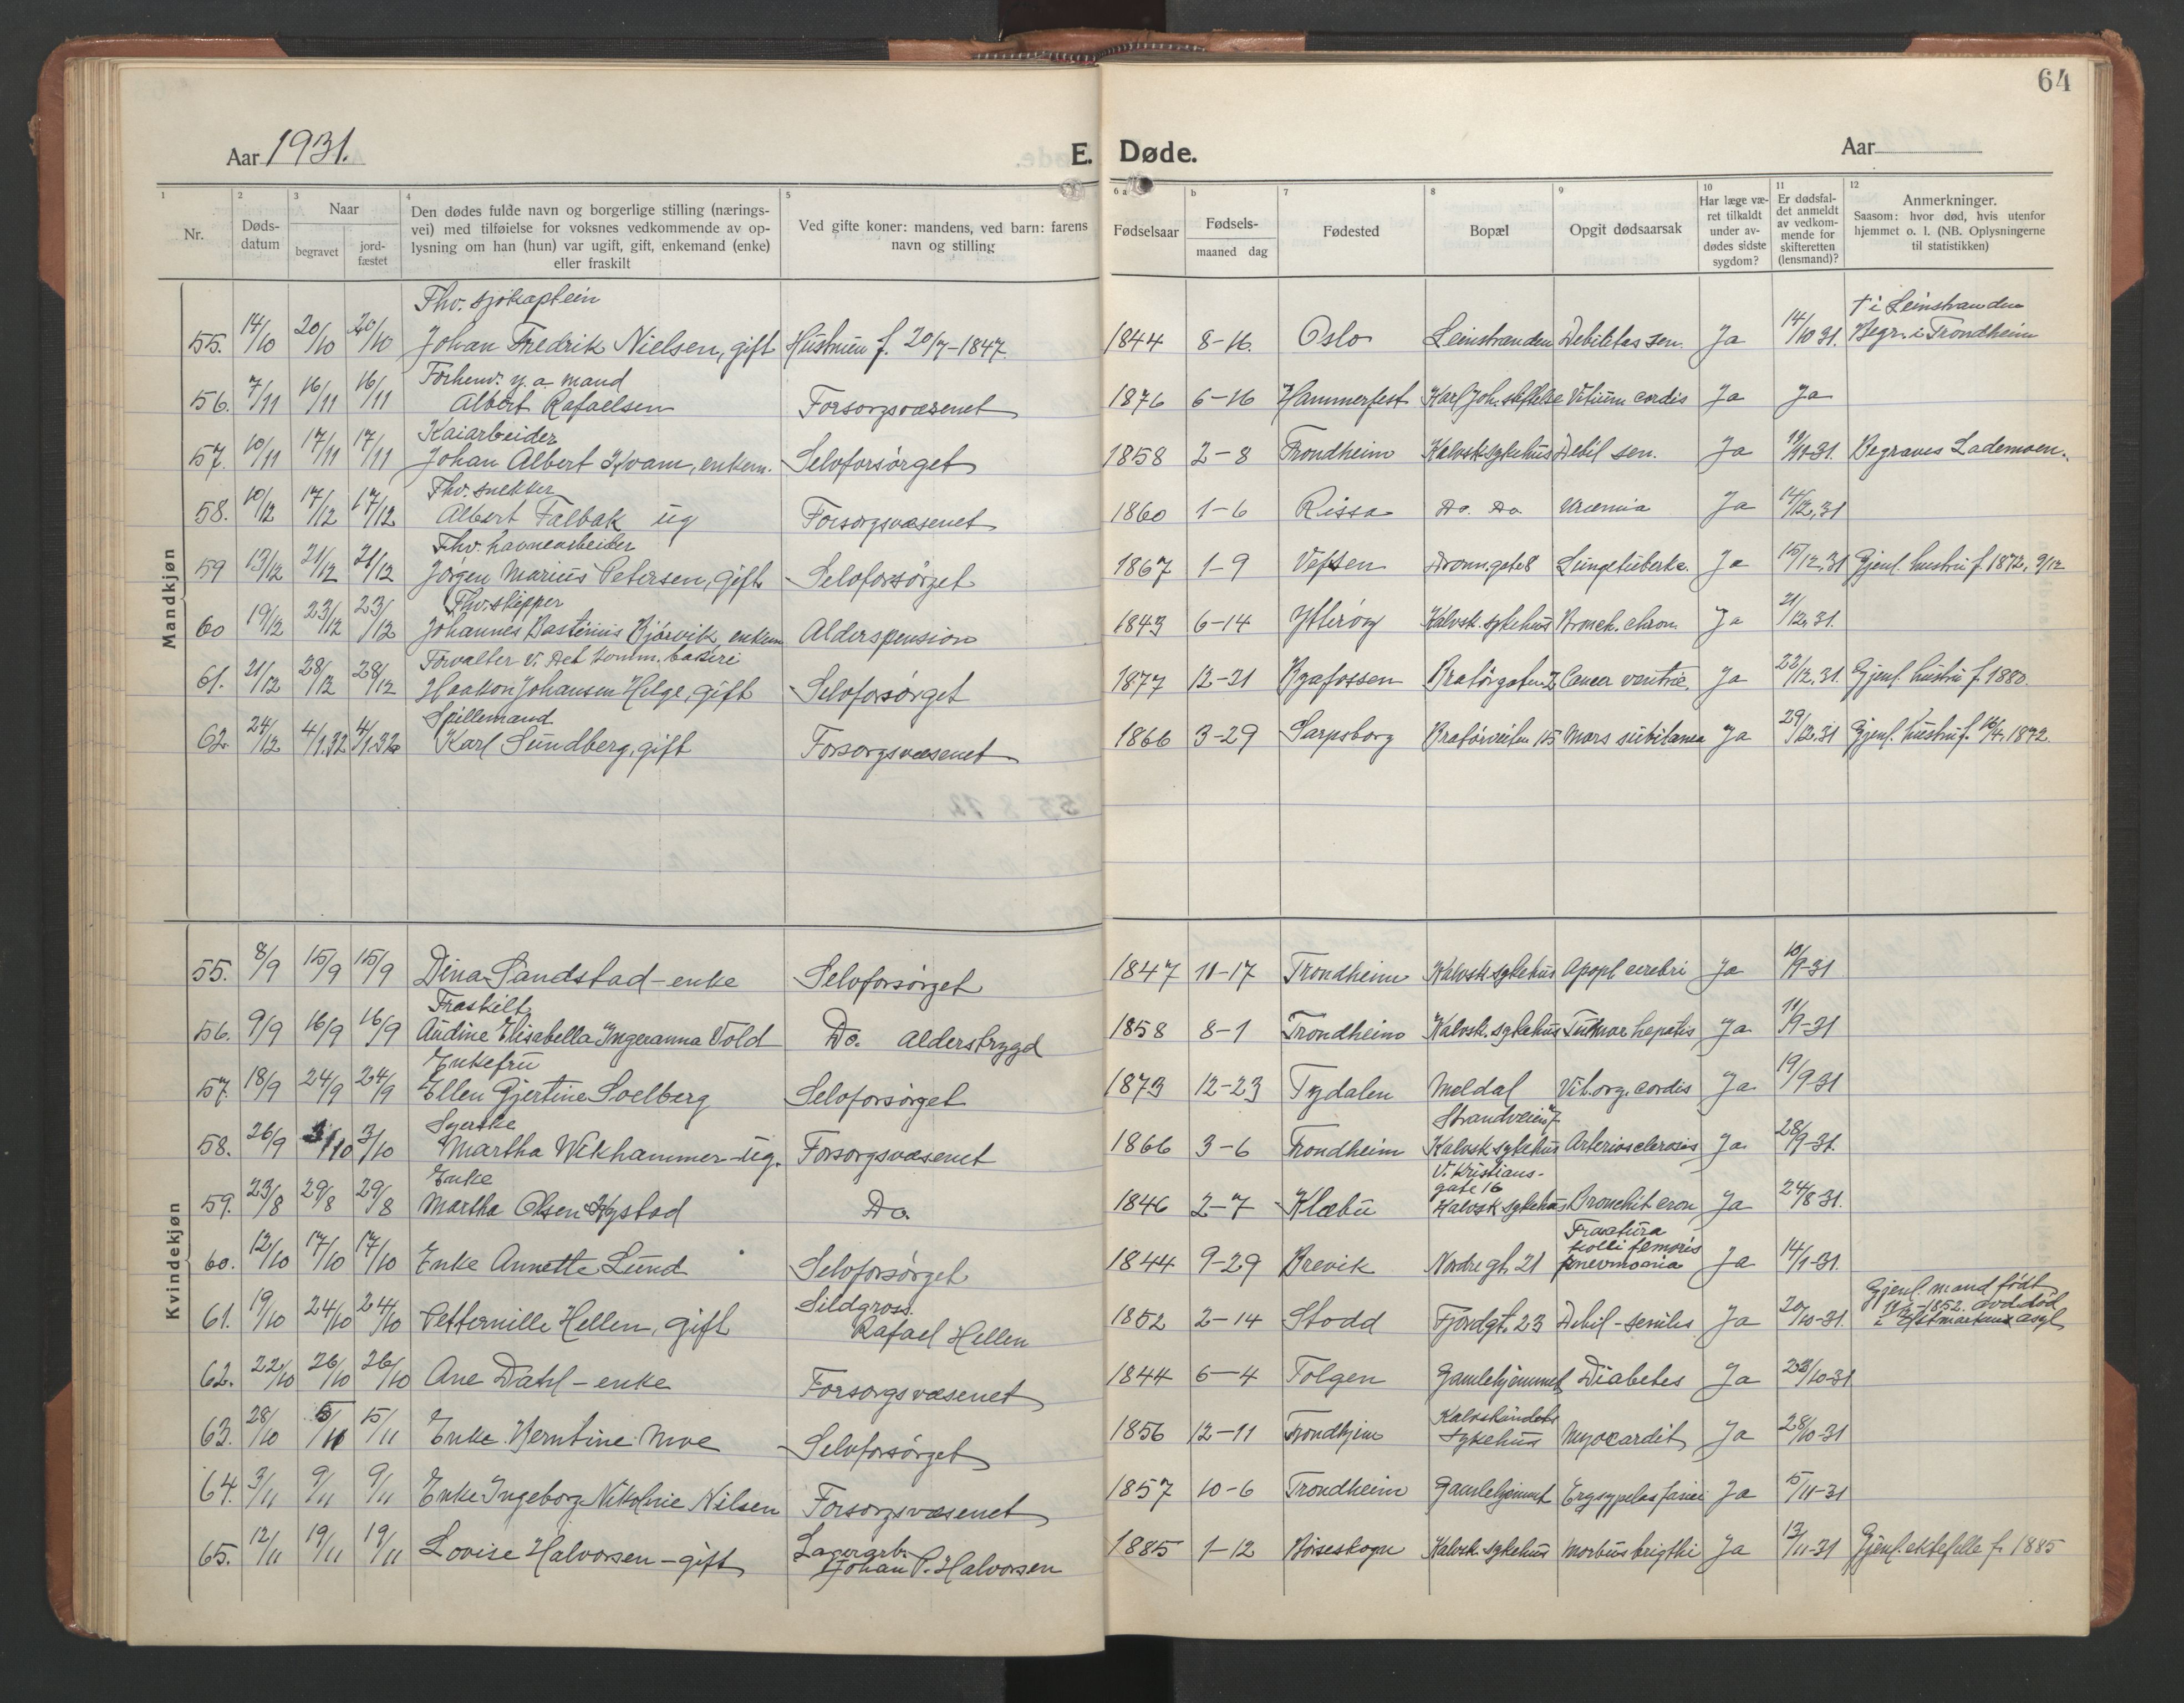 64
Aar 1931. E. Døde. Aar
1 2 3 4 5 6 a b 7 8 9 10 11 12
Nr. Døds-datum Naar begravet jord-fæstet Den dødes fulde navn og borgerlige stilling (nærings-vei) med tilføielse for voksnes vedkommende av op-lysning om han (hun) var ugift, gift, enkemand (enke) eller fraskilt Ved gifte koner: mandens, ved barn: farens navn og stilling Fødselsaar Fødsels- maaned dag Fødested Bopæl Opgit dødsaarsak Har læge væ-ret tilkaldt under av-dødes sidste sygdom? Er dødsfal-det anmeldt av vedkom-mende for skifteretten (lensmand)? Anmerkninger. Saasom: hvor død, hvis utenfor hjemmet o. l. (NB. Oplysningerne til statistikken)
Mandkjøn
Fhv. sjøkaptein † i Leinstranden
55. 14/10 20/10 20/10 Johan Fredrik Nielsen, gift Hustruen f. 20/7-1847. 1844 8-16. Oslo Leinstranden Debilitas sen. Ja 14/10 31. Begr. i Trondheim
Forhenv. y. a. mand
56. 7/11 16/11 16/11 Albert Rafaelsen Forsorgsvæsenet 1876 6-16 Hammerfest Karl Joh. stiftelse Vitium cordis Ja Ja
Kaiarbeider
57. 10/11 17/11 17/11 Johan Albert Kvam, enkem. Selvforsørget 1858 2-8 Trondheim Kalvsk. sykehus Debil sen. Ja Begraves Lademoen.
Fhv. snekker
58. 10/12 17/12 17/12 Albert Falbak ug Forsorgsvæsenet 1860 1-6 Rissa Do. Do. Uræmia Ja 14/12.31
Fhv. havnearbeider
59 13/12 21/12 21/12 Jørgen Marius Petersen, gift Selvforsørget 1867 1-9 Vefsen Dronn.gate 8 Lungetuberk. Ja 15/12.31 Gjenl. hustru f. 1872, 9/12
Fhv. skipper
60 19/12 23/12 23/12 Johannes Bastinius Bjørvik, enkem Alderspension 1843 6-14 Ytterøy Kalvsk. sykehus Bronch. chron. Ja 21/12.31.
Forvalter v. Det komm. bakeri
61. 21/12 28/12 28/12 Haakon Johansen Helge, gift Selvforsørget 1877 12-21 Byafossen Cancer ventric. Ja 22/12.31. Gjenl. hustru f. 1880.
Spillemand
62. 24/12 4/1.32 4/1.32 Karl Sundberg, gift Forsorgsvæsenet 1866 3-29 Sarpsborg Bratørveiten 15 Mors subitanea Ja 29/12.31 Gjenl. hustru f. 1872.
Kvindekjøn
55. 8/9 15/9 15/9 Dina Sandstad - enke Selvforsørget 1847 11-17 Trondheim Kalvsk. sykehus Apopl cerebri Ja 10/9-31
Fraskilt
56. 9/9 16/9 16/9 Audine Elisabella Ingeranna Vold Do. Alderstrygd 1858 8-1 Trondheim Kalvsk. sykehus Tumor hepatis Ja 11/9-31
Enkefru
57. 18/9 24/9 24/9 Ellen Gjertine Solberg Selvforsørget 1873 12-23 Tydalen Meldal Vit. org. cordis Ja 19/9-31
Syerske Strandveien 7
58. 26/9 3/10 3/10 Martha Wikhammer - ug. Forsorgsvæsenet 1866 3-6 Trondheim Kalvsk sykehus Arteriosclerosis Ja 28/9-31.
Enke V. Kristians-gate 16
59. 23/8 29/8 29/8 Martha Olsen Hystad Do. 1846 2-7 Klæbu Kalvsk sykehus Bronchit cron Ja 24/8-31.
Fractura colli femoris
60. 12/10 17/10 17/10 Enke Annette Lund Selvforsørget 1844 9-29 Brevik Nordregt. 21 pneumonia Ja 14/1-31.
Sildgross. Gjenl. mand født 1852. avd.død
61. 19/10 24/10 24/10 Petternille Hellen, gift Rafael Hellen 1852 2-14 Stodd Fjordgt. 23 Debil-senilis Ja 20/10-31. i Østmarkens asyl
62. 22/10 26/10 26/10 Ane Dahl - enke Forsorgsvæsenet 1844 6-4 Tolgen Gamlehjemmet Diabetes Ja 23/10-31
63. 28/10 5/11 5/11 Enke Berntine Moe Selvforsørget 1856 12-11 Trondhjem Kalvskindets sykehus Myocardit Ja 28/10-31
64. 3/11 9/11 9/11 Enke Ingeborg Nikoline Nilsen Forsorgsvæsenet 1857 10-6 Trondheim Gamlehjemmet Erysypelas faciei Ja 5/11-31
Lagerarb.
65. 12/11 19/11 19/11 Lovise Halvorsen - gift Johan P. Halvorsen 1885 1-12 Børseskogn Kalvsk. sykehus Morbus brigthi Ja 13/11-31 Gjenl. ektefelle f. 1885